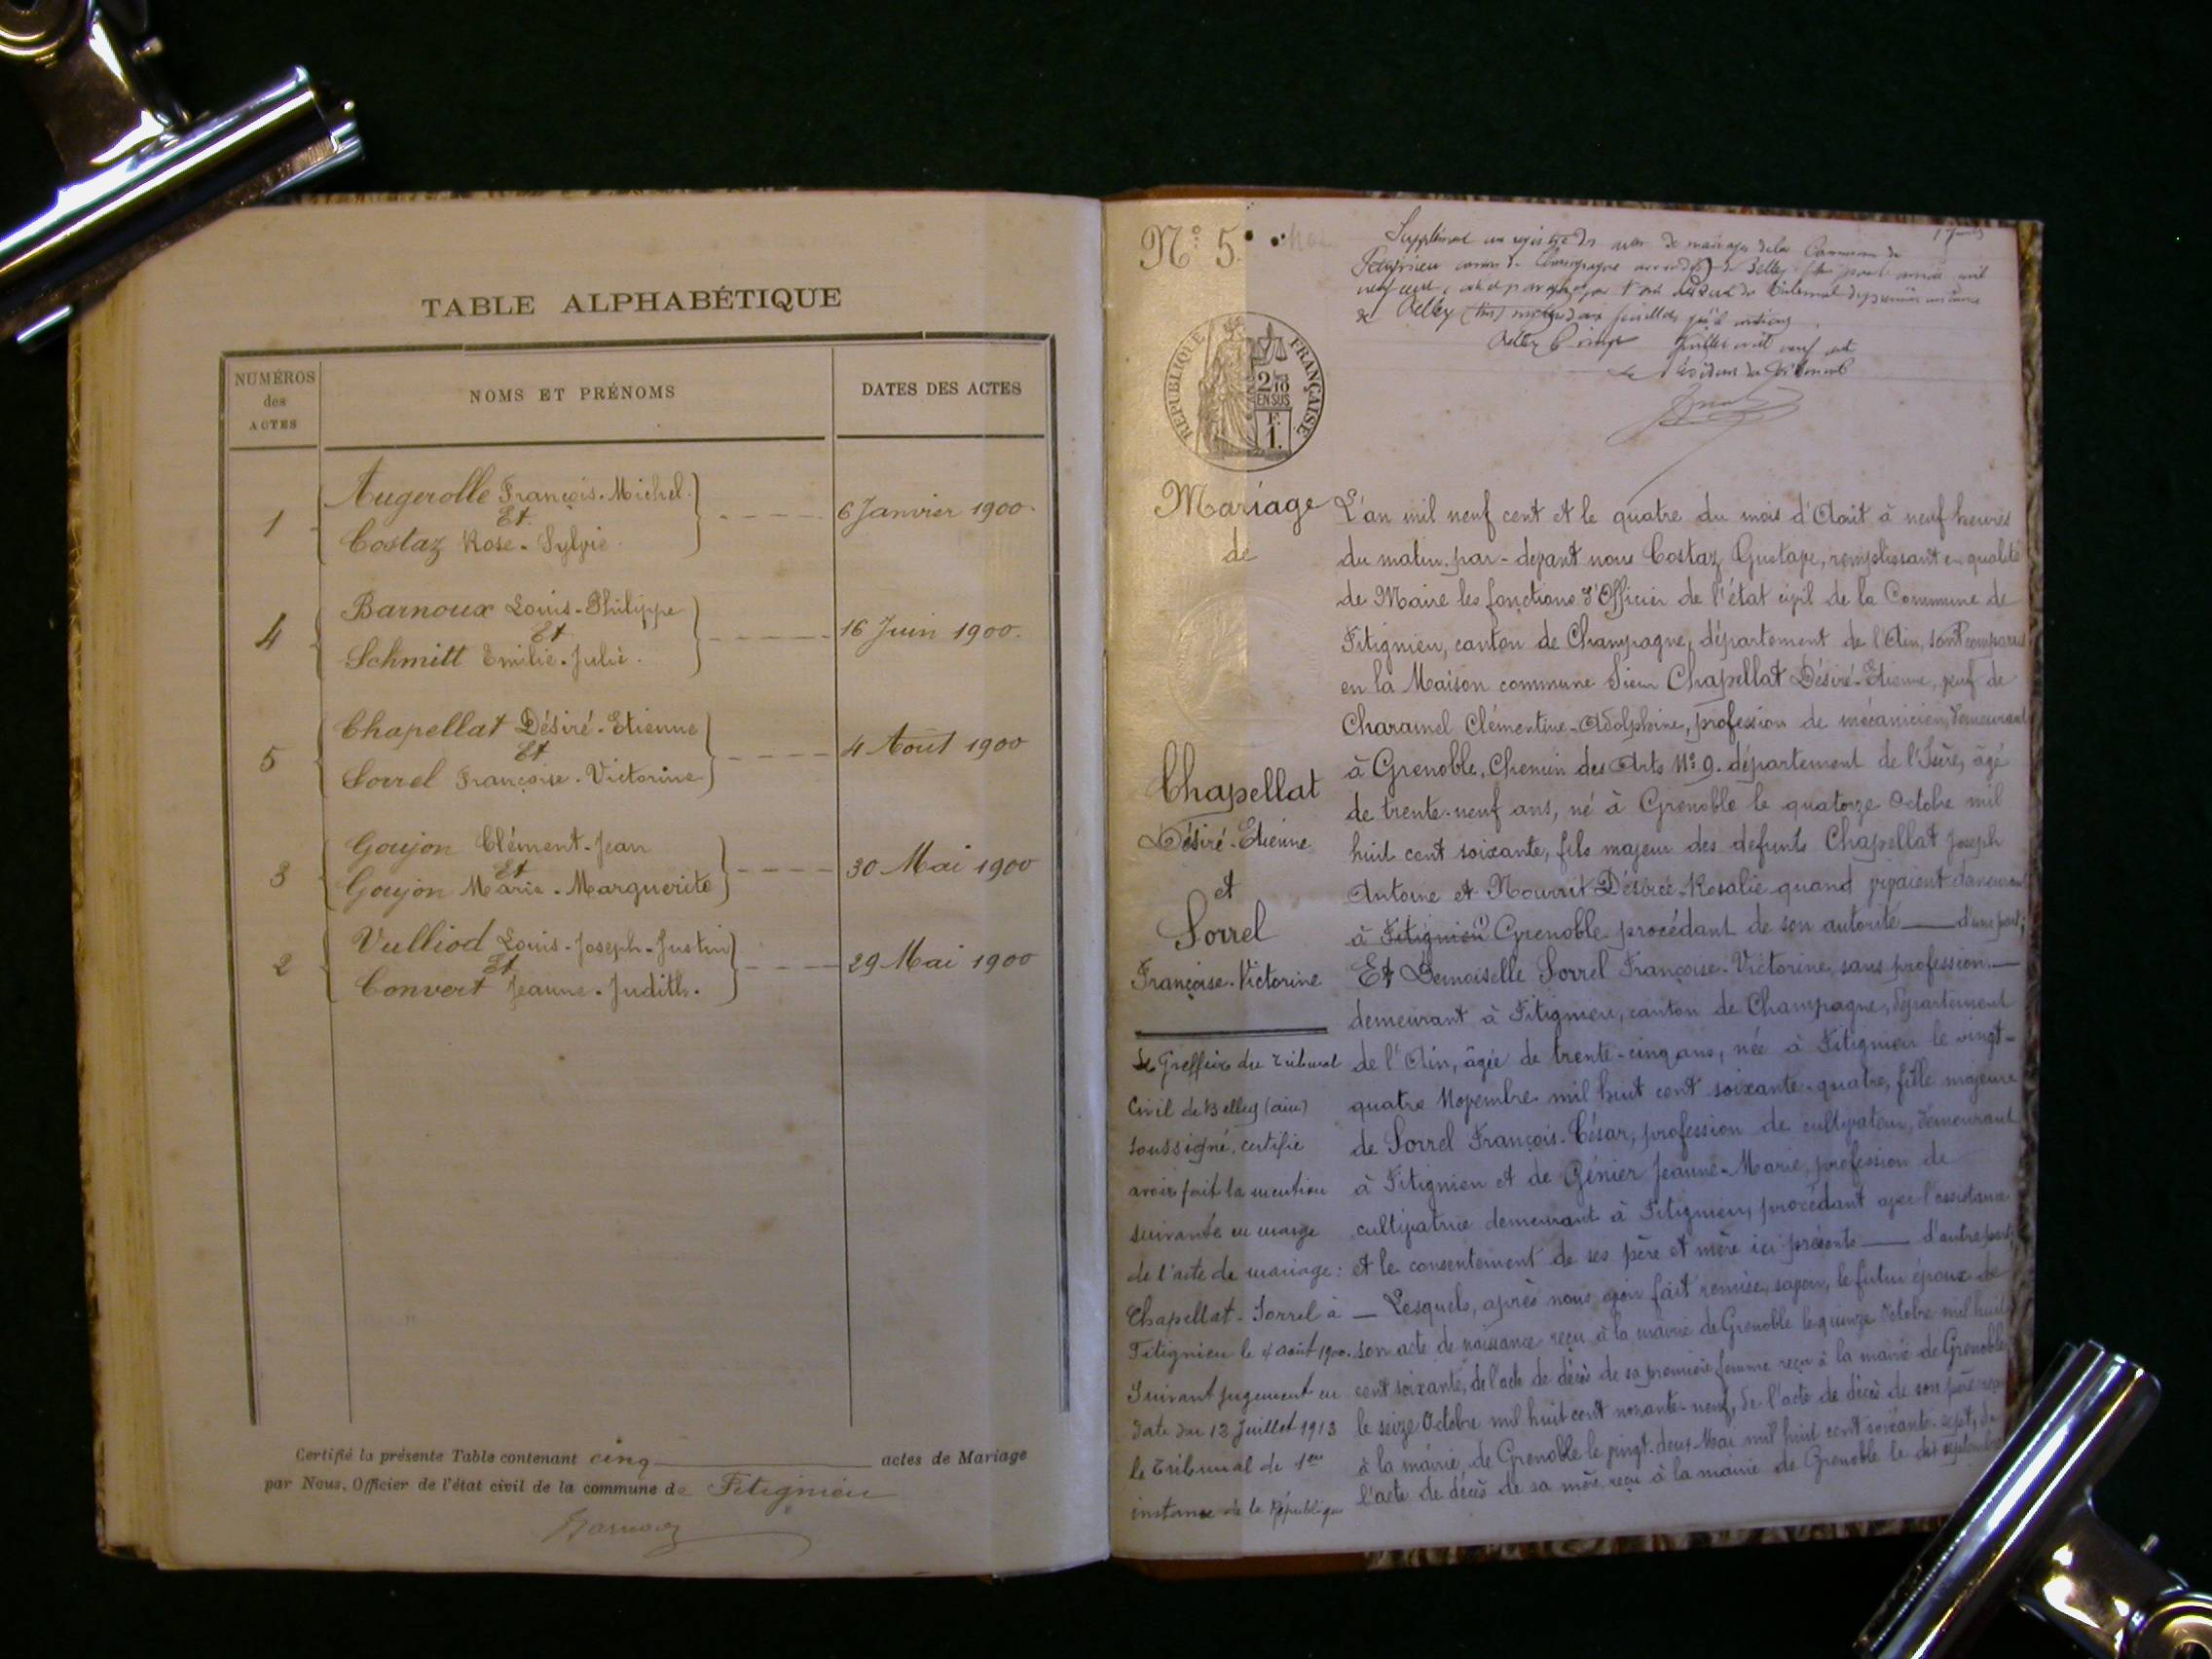 TABLE ALPHABÉTIQUE
NUMÉROS
des
ACTES
NOMS ET PRÉNOMS
DATES DES ACTES
1
Augerolle François-Michel
Et
Costaz Rose-Sylvie
6 Janvier 1900
4
Barnoux Louis-Philippe
Et
Schmitt Emilie-Julie
16 Juin 1900
5
Chapellat Désiré-Etienne
Et
Sorrel Françoise-Victorine
4 Août 1900
3
Goujon Clément-Jean
Et
Goujon Marie-Marguerite
30 Mai 1900
2
Vulliod Louis-Joseph-Justin
Et
Convert Jeanne-Judith
29 Mai 1900
Certifié la présente Table contenant cinq actes de Mariage
par Nous, Officier de l'état civil de la commune de Fitignieu
N° 5
Supplément au registre des actes de mariages de la Commune de
canton de Champagne de Belley pour année mil
neuf cent, du tribunal de première instance
de Belley
Juillet mil neuf cent
Le Président du Tribunal
RÉPUBLIQUE FRANÇAISE
2/10
EN SUS
F.
1.
Mariage
de
Chapellat
Désiré-Etienne
et
Sorrel
Françoise-Victorine
Le Greffier du Tribunal
Civil de Belley (ain)
soussigné, certifie
avoir fait la mention
suivante en marge
de l'acte de mariage:
Chapellat-Sorrel à
Fitignieu le 4 août 1900.
Suivant jugement en
date du 12 Juillet 1913
le Tribunal de 1ère
instance de la République
L'an mil neuf cent et le quatre du mois d'Août à neuf heures
du matin par-devant nous Costaz Gustave, remplissant en qualité
de Maire les fonctions d'Officier de l'état civil de la Commune de
Fitignieu, canton de Champagne, département de l'Ain, sont comparus
en la Maison commune Sieur Chapellat Désiré-Etienne, veuf de
Charamel Clémentine-Adolphine, profession de mécanicien, demeurant
à Grenoble, Chemin des Arts N° 9. département de l'Isère, âgé
de trente-neuf ans, né à Grenoble le quatorze Octobre mil
huit cent soixante, fils majeur des defunts Chapellat Joseph
Antoine et Nourrit Désirée-Rosalie quand vivaient demeurant
à Fitignieu Grenoble procédant de son autorité d'une part;
Et Demoiselle Sorrel Françoise-Victorine, sans profession,
demeurant à Fitignieu, canton de Champagne, département
de l'Ain, âgée de trente-cinq ans, née à Fitignieu le vingt-
quatre Novembre mil huit cent soixante-quatre, fille majeure
de Sorrel François-César, profession de cultivateur, demeurant
à Fitignieu et de Génier Jeanne-Marie, profession de
cultivatrice demeurant à Fitignieu, procédant avec l'assistance
et le consentement de ses père et mère ici présents d'autre part;
Lesquels, après nous avoir fait remise, savoir, le futur époux de
son acte de naissance reçu à la mairie de Grenoble le quinze Octobre mil huit
cent soixante, de l'acte de décès de sa première femme reçu à la mairie de Grenoble
le seize Octobre mil huit cent nonante-neuf, de l'acte de décès de son père reçu
à la mairie de Grenoble le vingt-deux Mai mil huit cent soixante-sept, de
l'acte de décès de sa mère reçu à la mairie de Grenoble le septembre